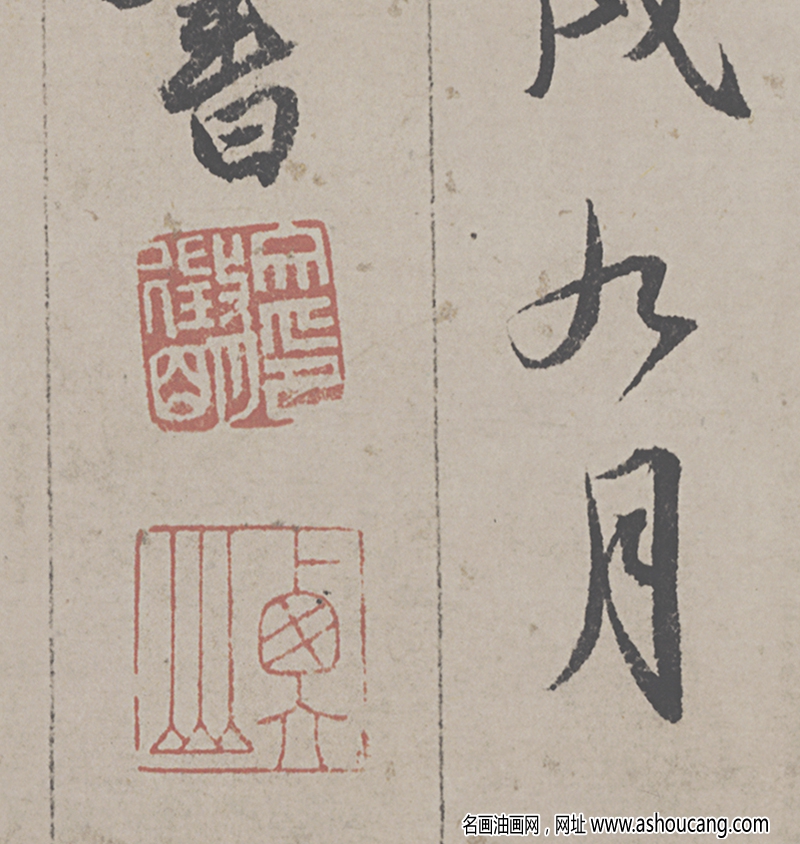 九月
書
徵明
衡山
名画油画网，网址 www.ashoucang.com